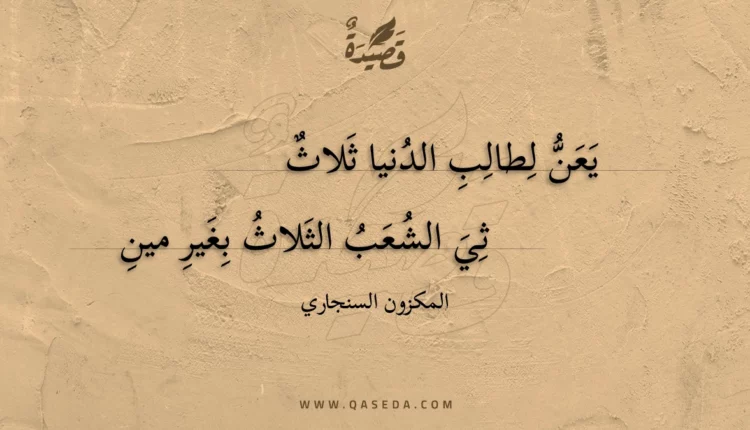 قَصِيدَةٌ
يَعَنُّ لِطالِبِ الدُنيا ثَلاثٌ
ثِيَ الشُعَبُ الثَلاثُ بِغَيرِ مينِ
المكزون السنجاري
WWW.QASEDA.COM